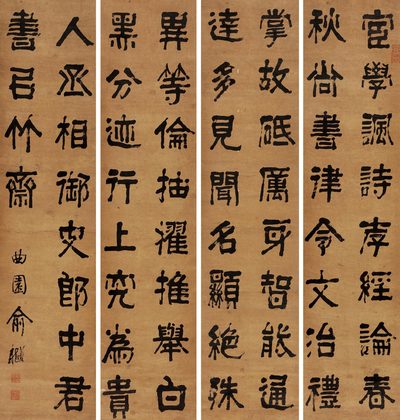 宦學諷詩孝經論春
秋尚書律令文治禮
掌故砥厲身智能通
達多見聞名顯絕殊
異等倫抽擢推舉白
黑分迹行上究為貴
人丞相御史郎中君
書竹齋
曲園俞樾